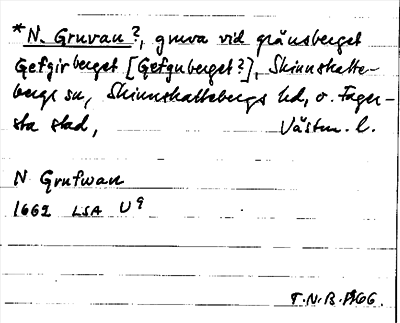 *N. Gruvan?, gruva vid gränsberget
Gefgirberget [Gefguberget?], Skinnskatte-
bergs sn, Skinnskattebergs hd, o. Fager-
sta stad, Västm. l.
N Grufwan
1662 LSA U9
T.N.B.